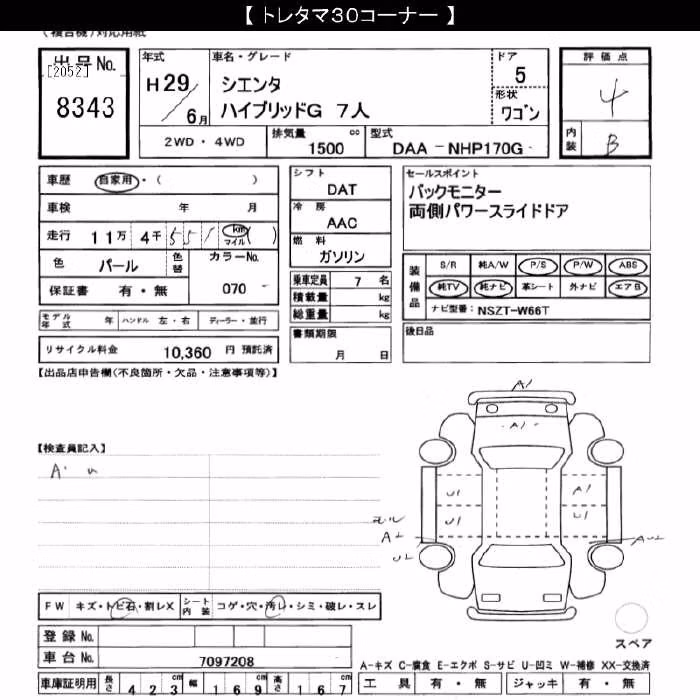 【 トレタマ30コーナー 】
(複合機)対応用紙
出品No.
[2052]
8343
年式
H29/6月
車名・グレード
シエンタ
ハイブリッドG 7人
ドア
5
形状
ワゴン
評価点
4
内装
B
2WD・4WD
排気量 1500 cc
型式 DAA - NHP170G-
車歴 自家用・( )
車検 年 月
走行 11万 4千 5 5 1 km マイル ( )
色 パール 色替 カラーNo.
保証書 有・無 070 -
シフト
DAT
冷房
AAC
燃料
ガソリン
セールスポイント
バックモニター
両側パワースライドドア
装備品
S/R 純A/W P/S P/W ABS
純TV 純ナビ 革シート 外ナビ エアB
ナビ型番: NSZT-W66T
乗車定員 7 名
積載量 kg
総重量 kg
モデル年式 年 ハンドル 左・右 ディーラー・並行
書類期限
月 日
後日品
リサイクル料金 10,360 円 預託済
【出品店申告欄(不良箇所・欠品・注意事項等)】
【検査員記入】
A1
A1
U1 A1
U1 U1
A1
U1
FW キズ・トビ石・割レX シート内装 コゲ・穴・汚レ・シミ・破レ・スレ
登録No.
車台No. 7097208
スペア
A-キズ C-腐食 E-エクボ S-サビ U-凹ミ W-補修 XX-交換済
車庫証明用 長さ 423 cm 幅 169 cm 高さ 167 cm
工具 有・無 ジャッキ 有・無